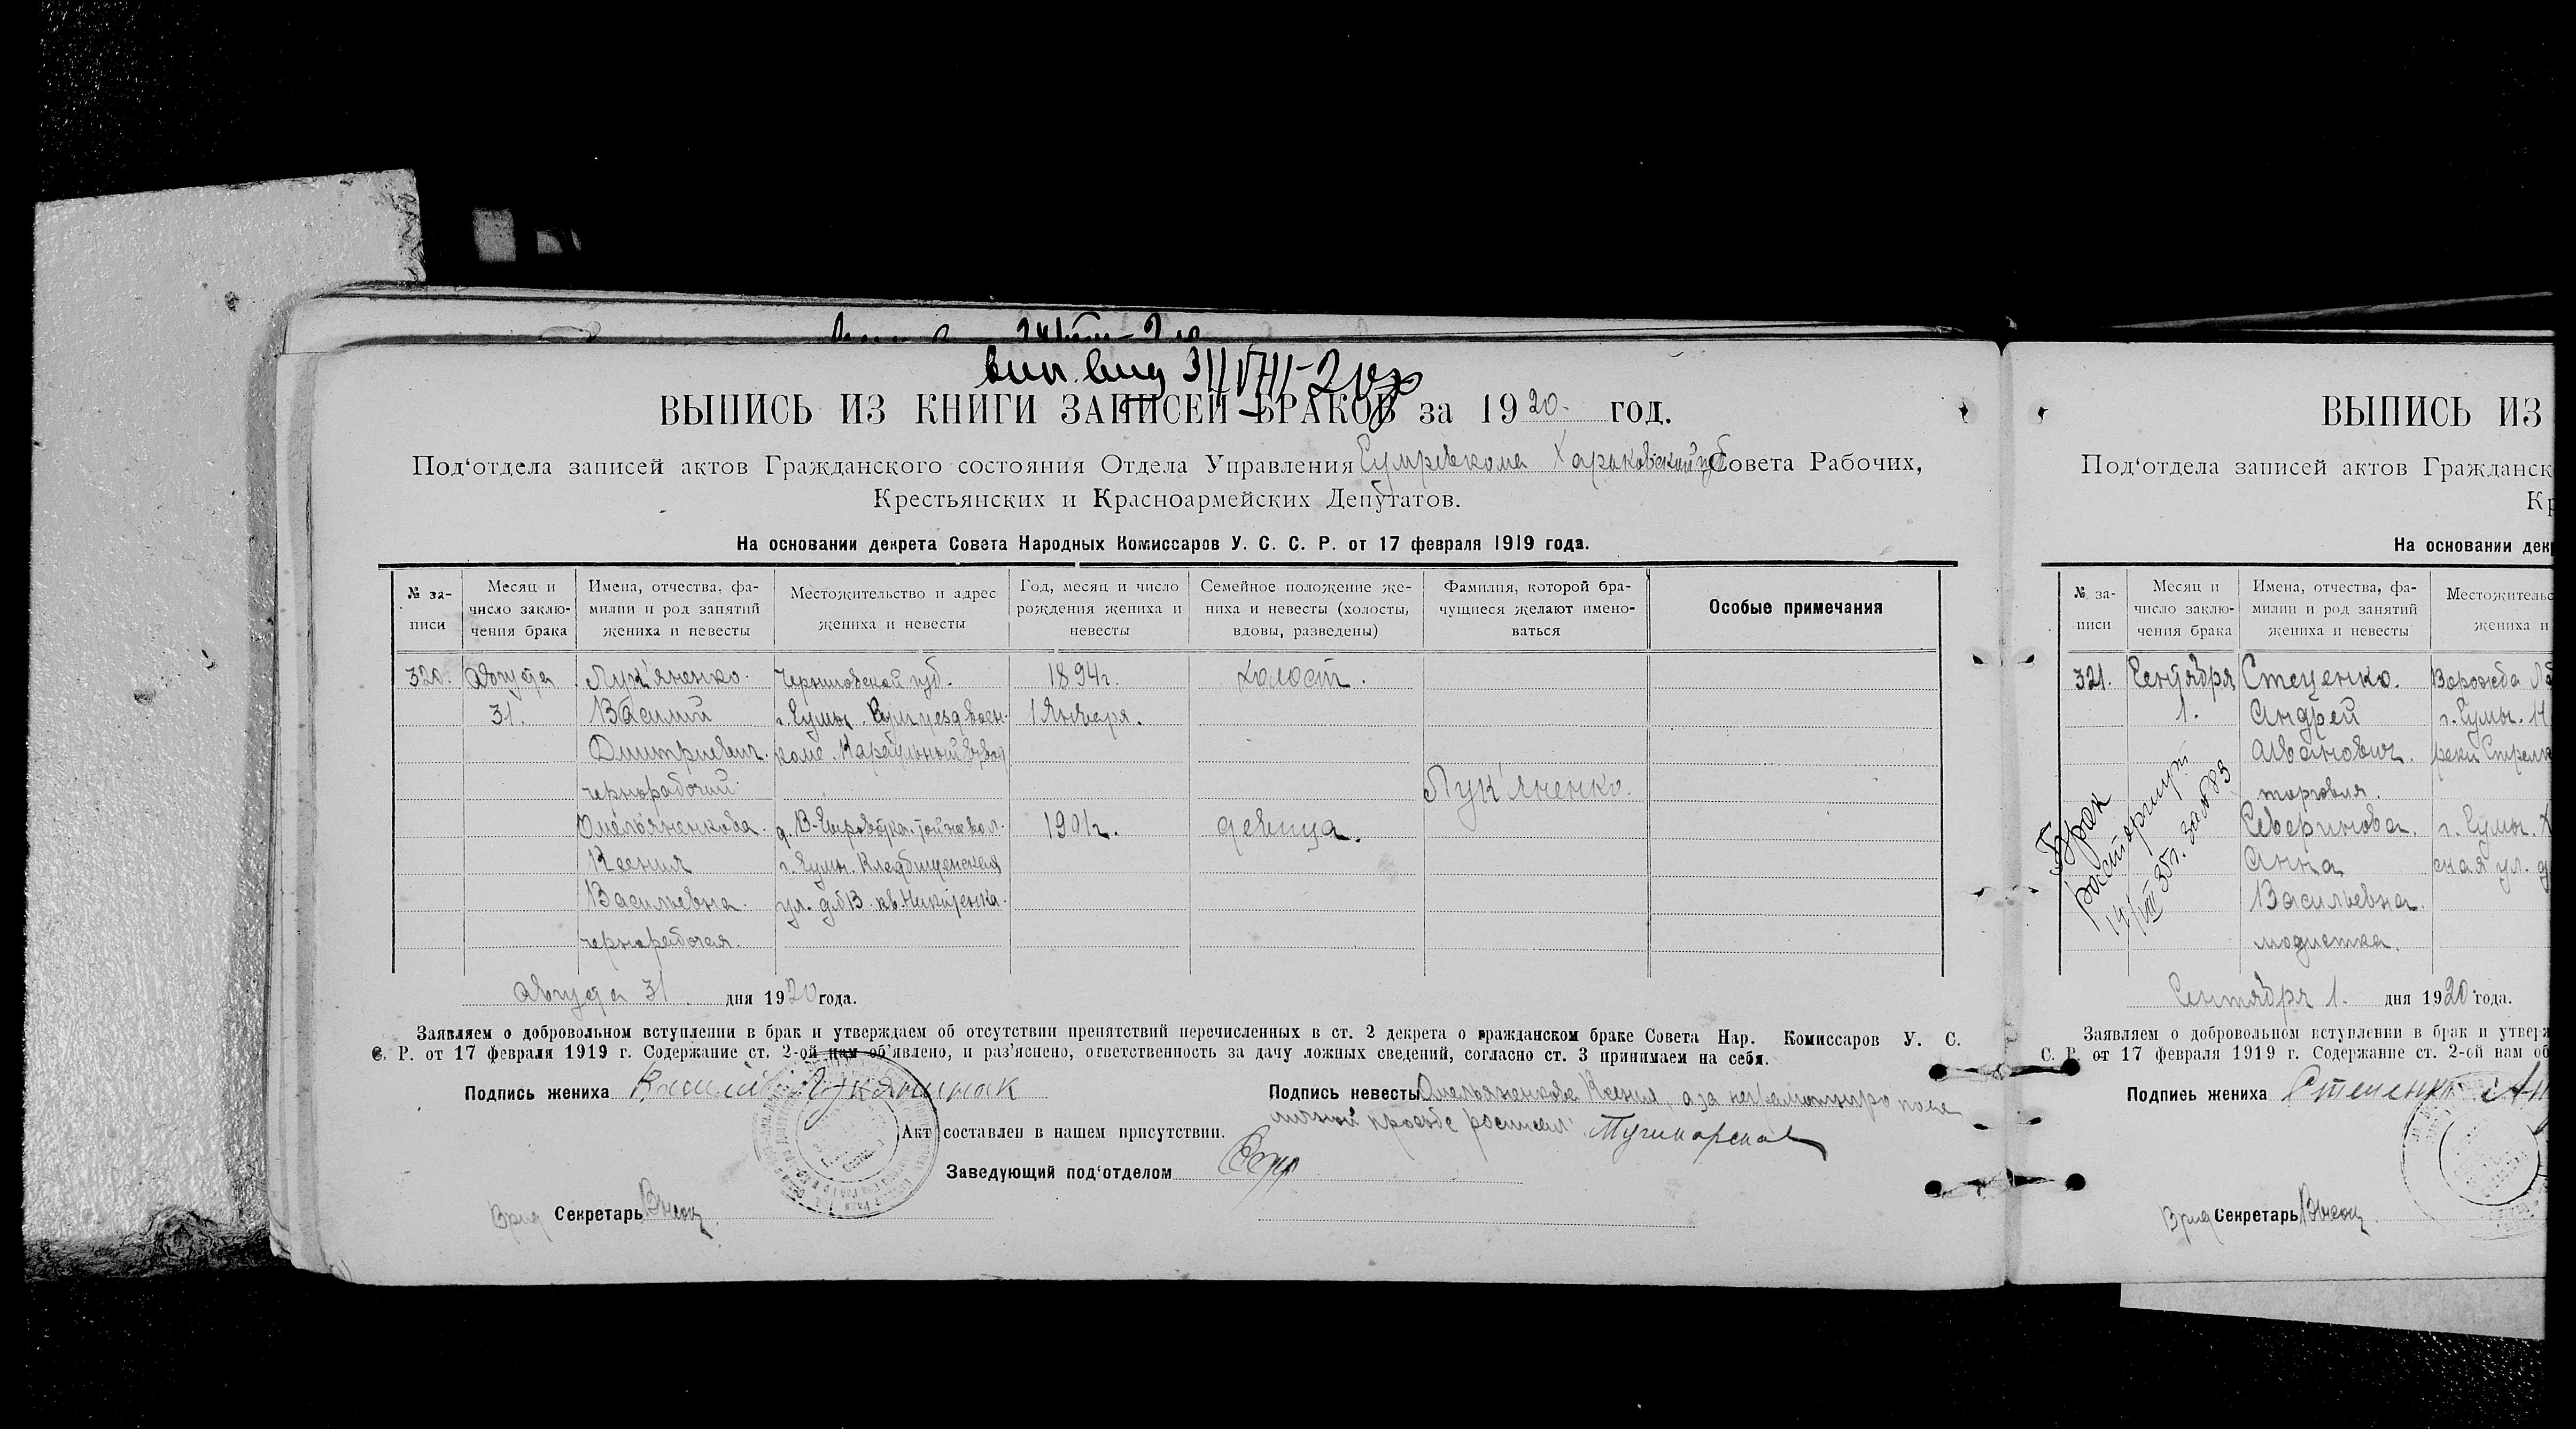 вип. вид 31/VIII-2
ВЫПИСЬ ИЗ КНИГИ ЗАПИСЕЙ БРАКОВ за 1920 год.
Под‘отдела записей актов Гражданского состояния Отдела Управления Сумревкома Харьковской губ Совета Рабочих,
Крестьянских и Красноармейских Депутатов.
На основании декрета Совета Народных Комиссаров У. С. С. Р. от 17 февраля 1919 года.
№ за- Месяц и Имена, отчества, фа- Местожительство и адрес Год, месяц и число Семейное положение же- Фамилия, которой бра- Особые примечания
писи число заклю- милии и род занятий жениха и невесты рождения жениха и ниха и невесты (холосты, чущиеся желают имено-
чения брака жениха и невесты невесты вдовы, разведены) ваться
320. Августа Лук'яненко. Черниговской губ. 1894г. холост.
31. Василий г. Сумы. 1 Января.
Дмитриевич. Караульный взвод
чернорабочий. Лук'яненко.
Омельяненкова. 1901г. девица.
Ксения г. Сумы. Кладбищенская
Васильевна. ул. д №13 кв. Никитенка.
чернорабочая.
Августа 31. дня 1920 года.
Заявляем о добровольном вступлении в брак и утверждаем об отсутствии препятствий перечисленных в ст. 2 декрета о гражданском браке Совета Нар. Комиссаров У. С.
С. Р. от 17 февраля 1919 г. Содержание ст. 2-ой нам об‘явлено, и раз‘яснено, ответственность за дачу ложных сведений, согласно ст. 3 принимаем на себя.
Подпись жениха Василий Подпись невесты Омельяненкова Ксения, а за неграмотную по ее
личной просьбе росписался
Акт составлен в нашем присутствии.
Заведующий под‘отделом
Врид Секретарь
ВЫПИСЬ ИЗ
Под‘отдела записей актов Гражданск
Кр
На основании дек
№ за- Месяц и Имена, отчества, фа- Местожительс
писи число заклю- милии и род занятий жениха и
чения брака жениха и невесты
321. Сентября Стеценко. Ворожба
1. Андрей г. Сумы. Н
Иванович. реки Стрелк
торговля.
Северинова. г. Сумы.
Анна ская ул. д
Васильевна.
модистка.
Брак
расторгнут
14/VIII 35г. за № 83
Сентября 1. дня 1920 года.
Заявляем о добровольном вступлении в брак и утвер
С. Р. от 17 февраля 1919 г. Содержание ст. 2-ой нам об
Подпись жениха Стеценко Ан
Врид Секретарь